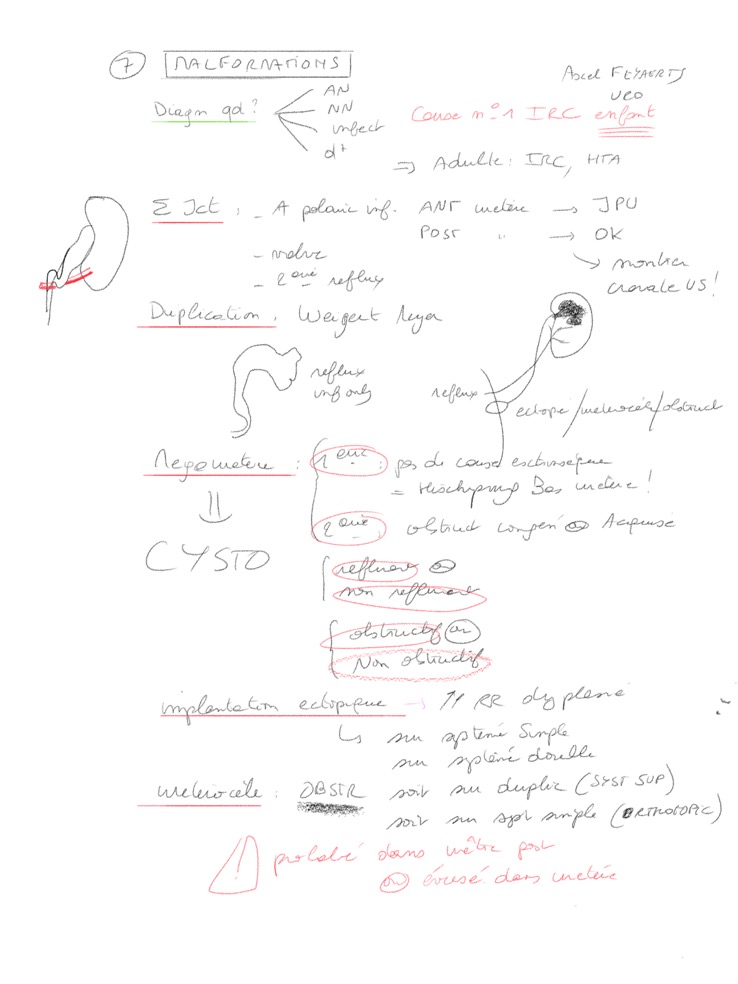 7 MALFORMATIONS
Axel FEYAERTS
URO
Diagn qd ?
AN
NN
infect
d+
Cause n°1 IRC enfant
=> Adulte : IRC, HTA
Σ Jct : - A polaire inf. ANT uretère → JPU
POST " → OK
- valve
- 2aire reflux
↳ montrer
crorale US !
Duplication : Weigert Meyer
reflux
inf only
reflux
ectopie/uretérocèle/obstruct
Megauretère : 1aire : pas de cause extrinsèque
= Hirschsprung Bas uretère !
2aire obstruct congén ou Acquise
CYSTO
refluant ou
non refluant
obstructif ou
Non obstructif
implantation ectopique → RR dysplasie
↳ sur système Simple
sur système double
uretérocèle : OBSTR soit sur duplic (SYST SUP)
soit sur syst simple (ORTHOTOPIC)
! prolabé dans urètre post
ou éversé dans uretère